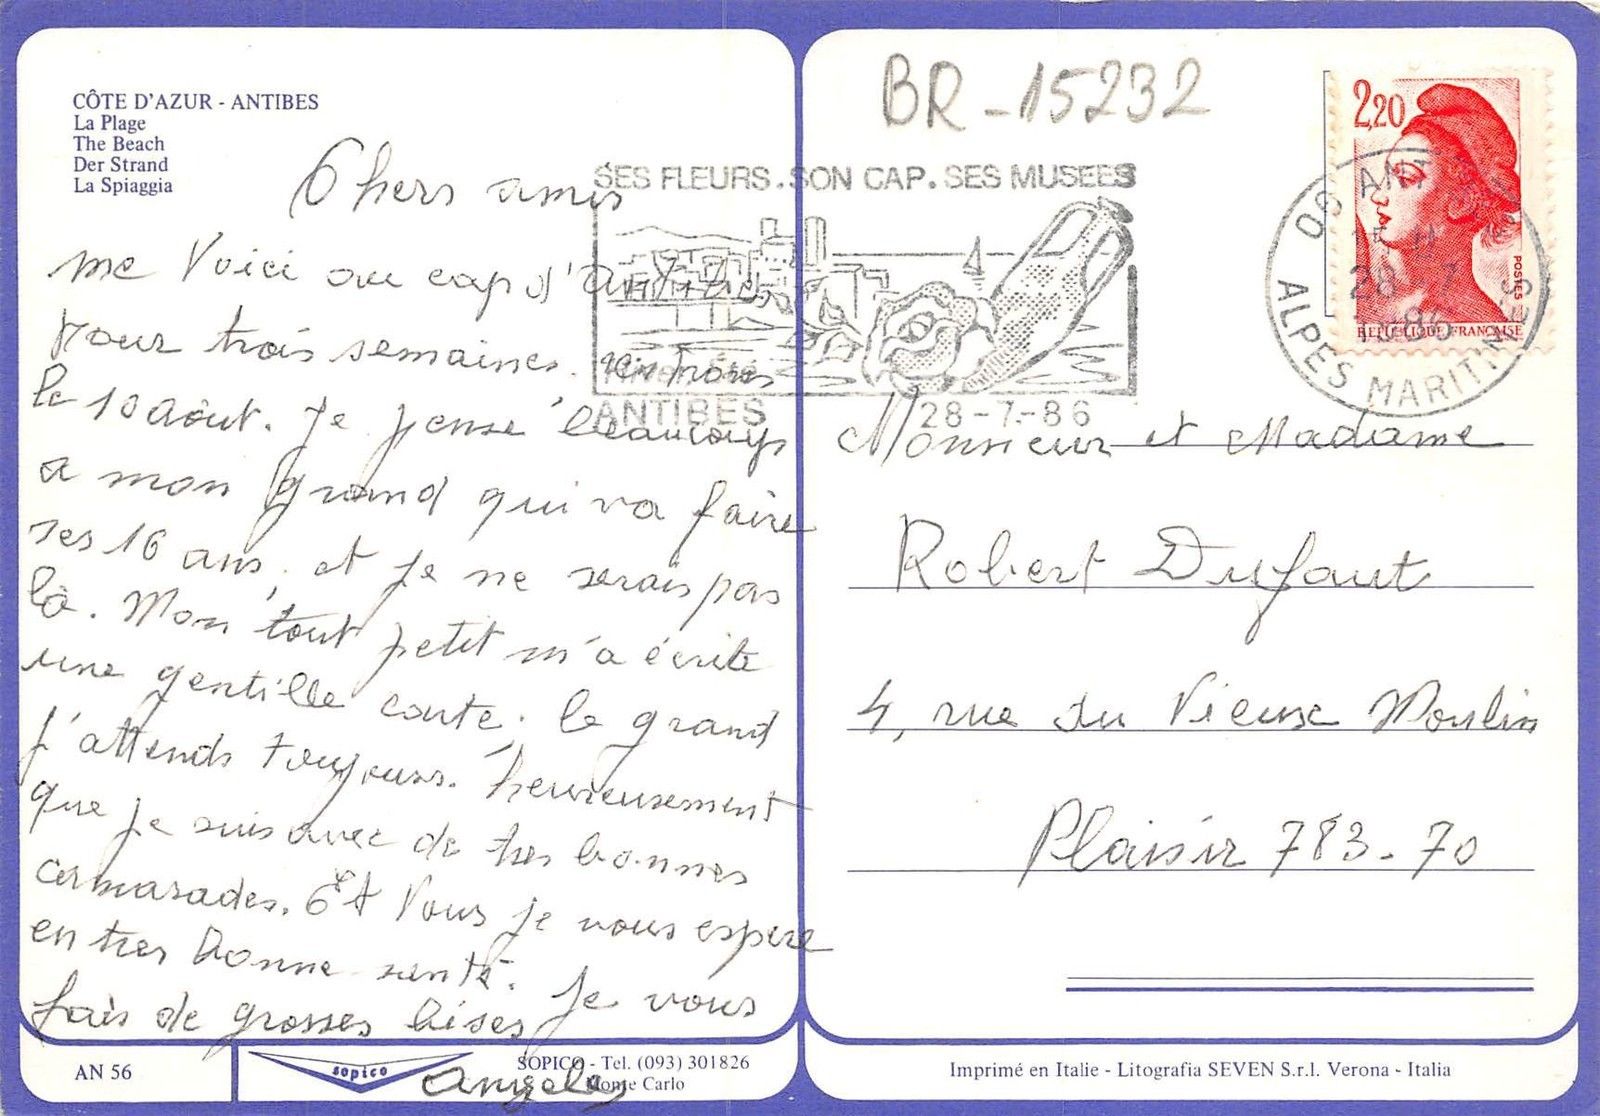 CÔTE D'AZUR - ANTIBES
La Plage
The Beach
Der Strand
La Spiaggia
Chers amis
me Voici au cap d'antibes
pour trois semaines. rentrons
le 10 Août. Je pense beaucoup
a mon grand qui va faire
ses 16 ans, et je ne serais pas
là. Mon tout petit m'a écrite
une gentille carte. le grand
j'attends toujours. heureusement
que je suis avec de tres bonnes
camarades. Et Vous je vous espere
en tres bonne santé. Je vous
fais de grosses bises
Angele
AN 56
sopico
SOPICO - Tel. (093) 301826
Monte Carlo
BR-15232
SES FLEURS. SON CAP. SES MUSEES
ANTIBES
28-7-86
2,20
POSTES
REPUBLIQUE FRANÇAISE
06 ANTIBES
28 7
1986
ALPES MARITIMES
Monsieur et Madame
Robert Dufaut
4, rue du Vieux Moulin
Plaisir 783-70
Imprimé en Italie - Litografia SEVEN S.r.l. Verona - Italia